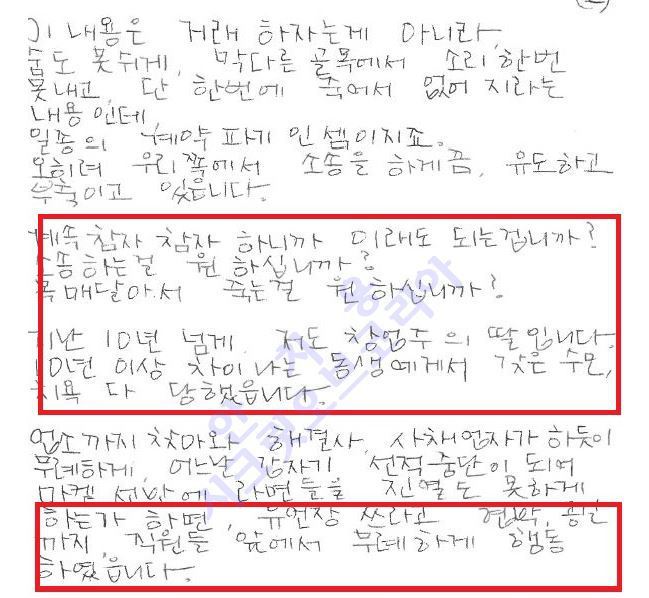 (2)
이 내용은 거래 하자는게 아니라,
숨도 못쉬게, 막다른 골목에서 소리 한번
못내고 단 한번에 죽어서 없어 지라는
내용 인데,
일종의 계약 파기 인 셈이지죠.
오히려 우리쪽에서 소송을 하게끔, 유도하고
부축이고 있읍니다.
계속 참자 참자 하니까 이래도 되는겁니까?
소송하는걸 원 하십니까?
목매달아서 죽는걸 원 하십니까?
지난 10년 넘게, 저도 창업주의 딸입니다.
10년 이상 차이나는 동생에게서 갖은 수모,
치욕 다 당했읍니다.
업소까지 찾아와 해결사, 사채업자가 하듯이
무례하게, 어느날 갑자기 선적중단이 되어
마켙 세일에 라면들을 진열도 못하게
하는가 하면, 유언장 쓰라고 협박, 공갈
까지, 직원들 앞에서 무례하게 행동
하였읍니다.
시크릿오브코리아